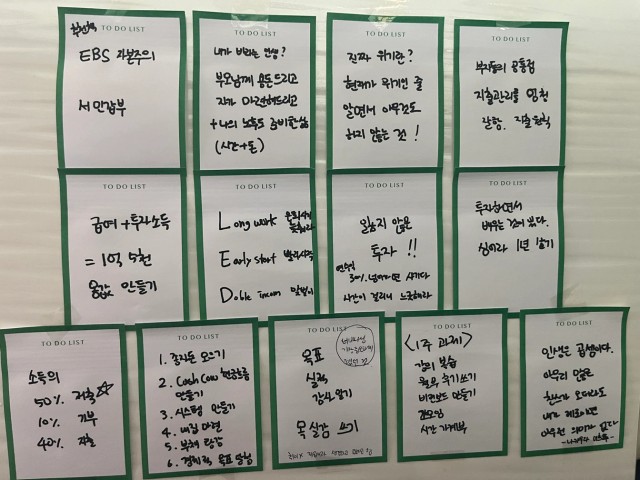 추천책
TO DO LIST
EBS 자본주의
서안갑부
TO DO LIST
내가 바라는 인생?
부모님께 용돈드리고
자가 마련해드리고
+나의 노후도 준비한 삶
(시간+돈)
TO DO LIST
진짜 위기란?
현재가 위기인 줄
알면서 아무것도
하지 않는 것!
TO DO LIST
부자들의 공통점
지출관리를 엄청
잘함. 지출 원칙
TO DO LIST
급여+투자소득
=1억 5천
몸값 만들기
TO DO LIST
Long work 은퇴시기 늦춰라
Early start 빨리시작
Doble incom 맞벌이
TO DO LIST
잃지 않은
투자!!
연수익
30% 넘어가면 사기다
시간이 걸리니 느긋해라
TO DO LIST
투자하면서
배우는 것이 빠르다.
1년
TO DO LIST
소득의
50% 저축☆
10% 기부
40% 지출
TO DO LIST
1. 종자돈 모으기
2. Cash Cow 현금흐름
만들기
3. 시스템 만들기
4. 내집 마련
5. 부채 탕감
6. 경제적 목표 달성
TO DO LIST
목표
실적
감사일기
목실감 쓰기
TO DO LIST
<1주 과제>
강의 복습
필요 후기쓰기
비전보드 만들기
시간 가계부
TO DO LIST
인생은 곱셈이다.
아무리 많은
찬스가 오더라도
내가 제로이면
아무런 의미가 없다